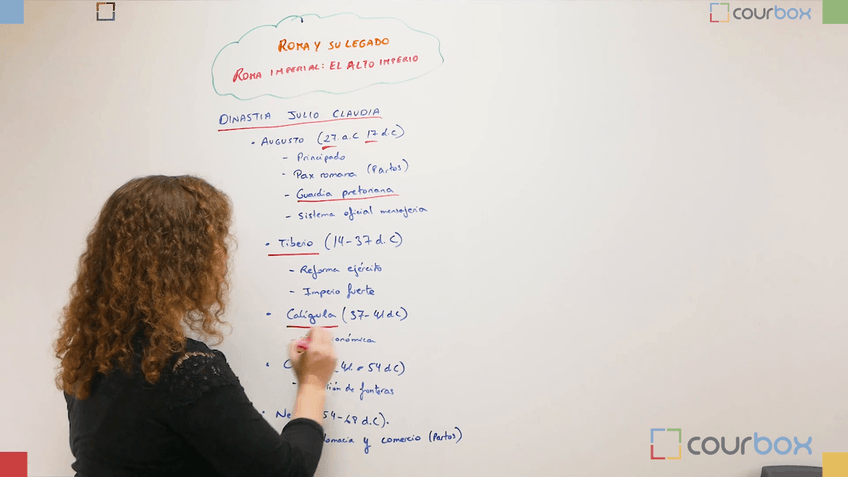 courbox
ROMA Y SU LEGADO
ROMA IMPERIAL: EL ALTO IMPERIO
DINASTIA JULIO CLAUDIA
• AUGUSTO (27 a.C 17 d.C)
- Principado
- Pax romana (Partos)
- Guardia pretoriana
- Sistema oficial mensajeria
• Tiberio (14-37 d.C)
- Reforma ejército
- Imperio fuerte
• Calígula (37-41 d.C)
onómica
• C 41 - 54 d.C)
- ión de fronteras
• Ne 54-68 d.C).
lomacia y comercio (Partos)
courbox